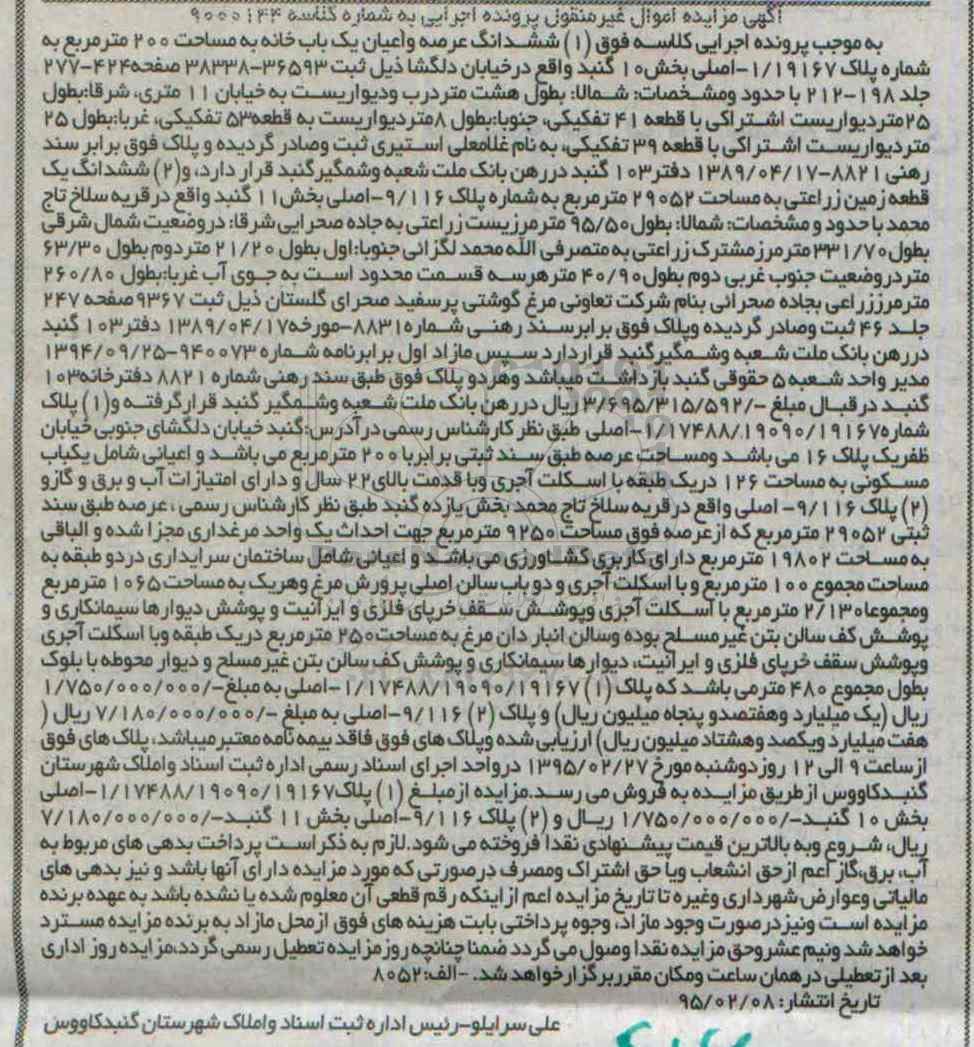 آگهی مزایده اموال غیرمنقول پرونده اجرایی به شماره کلاسه ۹۰۰۰۱۴۴
به موجب پرونده اجرایی کلاسه فوق (۱) ششدانگ عرصه واعیان یک باب خانه به مساحت ۲۰۰ مترمربع به
شماره پلاک ۱/۱۹۱۶۷-اصلی بخش۱۰ گنبد واقع درخیابان دلگشا ذیل ثبت ۳۶۵۹۳-۳۸۳۳۸ صفحه۴۲۴-۲۷۷
جلد ۱۹۸-۲۱۲ با حدود ومشخصات: شمالا: بطول هشت متردرب ودیواریست به خیابان ۱۱ متری، شرقا:بطول
۲۵متردیواریست اشتراکی با قطعه ۴۱ تفکیکی، جنوبا:بطول ۸متردیواریست به قطعه۵۳ تفکیکی، غربا:بطول ۲۵
متردیواریست اشتراکی با قطعه ۳۹ تفکیکی، به نام غلامعلی استیری ثبت وصادر گردیده و پلاک فوق برابر سند
رهنی ۸۸۲۱-۱۳۸۹/۰۴/۱۷ دفتر۱۰۳ گنبد دررهن بانک ملت شعبه وشمگیرگنبد قرار دارد، و(۲) ششدانگ یک
قطعه زمین زراعتی به مساحت ۲۹۰۵۲ مترمربع به شماره پلاک ۹/۱۱۶-اصلی بخش۱۱ گنبد واقع در قریه سلاخ تاج
محمد با حدود و مشخصات: شمالا: بطول۹۵/۵۰ مترمرزیست زراعتی به جاده صحرایی شرقا: دروضعیت شمال شرقی
بطول۳۳۱/۷۰ مترمرزمشترک زراعتی به متصرفی الله محمد لگزائی جنوبا:اول بطول ۲۱/۲۰ متردوم بطول ۶۳/۳۰
متردروضعیت جنوب غربی دوم بطول۴۰/۹۰ مترهرسه قسمت محدود است به جوی آب غربا:بطول ۲۶۰/۸۰
مترمرززراعی بجاده صحرائی بنام شرکت تعاونی مرغ گوشتی پرسفید صحرای گلستان ذیل ثبت ۹۳۶۷ صفحه ۲۴۷
جلد ۴۶ ثبت وصادر گردیده وپلاک فوق برابرسند رهنی شماره۸۸۳۱-مورخه۱۳۸۹/۰۴/۱۷ دفتر۱۰۳ گنبد
دررهن بانک ملت شعبه وشمگیرگنبد قراردارد سپس مازاد اول برابرنامه شماره ۹۴۰۰۷۳-۱۳۹۴/۰۹/۲۵
مدیر واحد شعبه ۵ حقوقی گنبد بازداشت میباشد وهردو پلاک فوق طبق سند رهنی شماره ۸۸۲۱ دفترخانه۱۰۳
گنبد درقبال مبلغ -/۳/۶۹۵/۳۱۵/۵۹۲ ریال دررهن بانک ملت شعبه وشمگیر گنبد قرارگرفته و(۱) پلاک
شماره۱/۱۷۴۸۸/۱۹۰۹۰/۱۹۱۶۷-اصلی طبق نظر کارشناس رسمی درآدرس:گنبد خیابان دلگشای جنوبی خیابان
ظفریک پلاک ۱۶ می باشد ومساحت عرصه طبق سند ثبتی برابربا ۲۰۰ مترمربع می باشد و اعیانی شامل یکباب
مسکونی به مساحت ۱۲۶ دریک طبقه با اسکلت آجری وبا قدمت بالای۲۲ سال و دارای امتیازات آب و برق و گازو
(۲) پلاک ۹/۱۱۶- اصلی واقع درقریه سلاخ تاج محمد بخش یازده گنبد طبق نظر کارشناس رسمی، عرصه طبق سند
ثبتی ۲۹۰۵۲ مترمربع که ازعرصه فوق مساحت ۹۲۵۰ مترمربع جهت احداث یک واحد مرغداری مجزا شده و الباقی
به مساحت ۱۹۸۰۲ مترمربع دارای کاربری کشاورزی می باشد و اعیانی شامل ساختمان سرایداری دردو طبقه به
مساحت مجموع ۱۰۰ مترمربع و با اسکلت آجری و دو باب سالن اصلی پرورش مرغ وهریک به مساحت۱۰۶۵ مترمربع
ومجموعا۲/۱۳۰ مترمربع با اسکلت آجری وپوشش سقف خرپای فلزی و ایرانیت و پوشش دیوارها سیمانکاری و
پوشش کف سالن بتن غیرمسلح بوده وسالن انبار دان مرغ به مساحت۲۵۰ مترمربع دریک طبقه وبا اسکلت آجری
وپوشش سقف خرپای فلزی و ایرانیت، دیوارها سیمانکاری و پوشش کف سالن بتن غیرمسلح و دیوار محوطه با بلوک
بطول مجموع ۴۸۰ مترمی باشد که پلاک (۱) ۱/۱۷۴۸۸/۱۹۰۹۰/۱۹۱۶۷-اصلی به مبلغ-/۱/۷۵۰/۰۰۰/۰۰۰
ریال (یک میلیارد وهفتصدو پنجاه میلیون ریال) و پلاک (۲) ۹/۱۱۶-اصلی به مبلغ -/۷/۱۸۰/۰۰۰/۰۰۰ ریال (
هفت میلیارد ویکصد وهشتاد میلیون ریال) ارزیابی شده وپلاک های فوق فاقد بیمه نامه معتبرمیباشد، پلاک های فوق
ازساعت ۹ الی ۱۲ روز دوشنبه مورخ ۱۳۹۵/۰۲/۲۷ درواحد اجرای اسناد رسمی اداره ثبت اسناد واملاک شهرستان
گنبدکاووس ازطریق مزایده به فروش می رسد.مزایده ازمبلغ (۱) پلاک۱/۱۷۴۸۸/۱۹۰۹۰/۱۹۱۶۷-اصلی
بخش ۱۰ گنبد-/۱/۷۵۰/۰۰۰/۰۰۰ ریال و (۲) پلاک ۹/۱۱۶-اصلی بخش ۱۱ گنبد-/۷/۱۸۰/۰۰۰/۰۰۰
ریال، شروع وبه بالاترین قیمت پیشنهادی نقدا فروخته می شود.لازم به ذکراست پرداخت بدهی های مربوط به
آب، برق،گاز اعم ازحق انشعاب ویا حق اشتراک ومصرف درصورتی که مورد مزایده دارای آنها باشد و نیز بدهی های
مالیاتی وعوارض شهرداری وغیره تا تاریخ مزایده اعم ازاینکه رقم قطعی آن معلوم شده یا نشده باشد به عهده برنده
مزایده است ونیزدرصورت وجود مازاد، وجوه پرداختی بابت هزینه های فوق ازمحل مازاد به برنده مزایده مسترد
خواهد شد ونیم عشروحق مزایده نقدا وصول می گردد ضمنا چنانچه روز مزایده تعطیل رسمی گردد،مزایده روز اداری
بعد ازتعطیلی درهمان ساعت ومکان مقرربرگزارخواهد شد. -الف:۸۰۵۲
تاریخ انتشار: ۹۵/۰۲/۰۸
علی سرایلو-رئیس اداره ثبت اسناد واملاک شهرستان گنبدکاووس